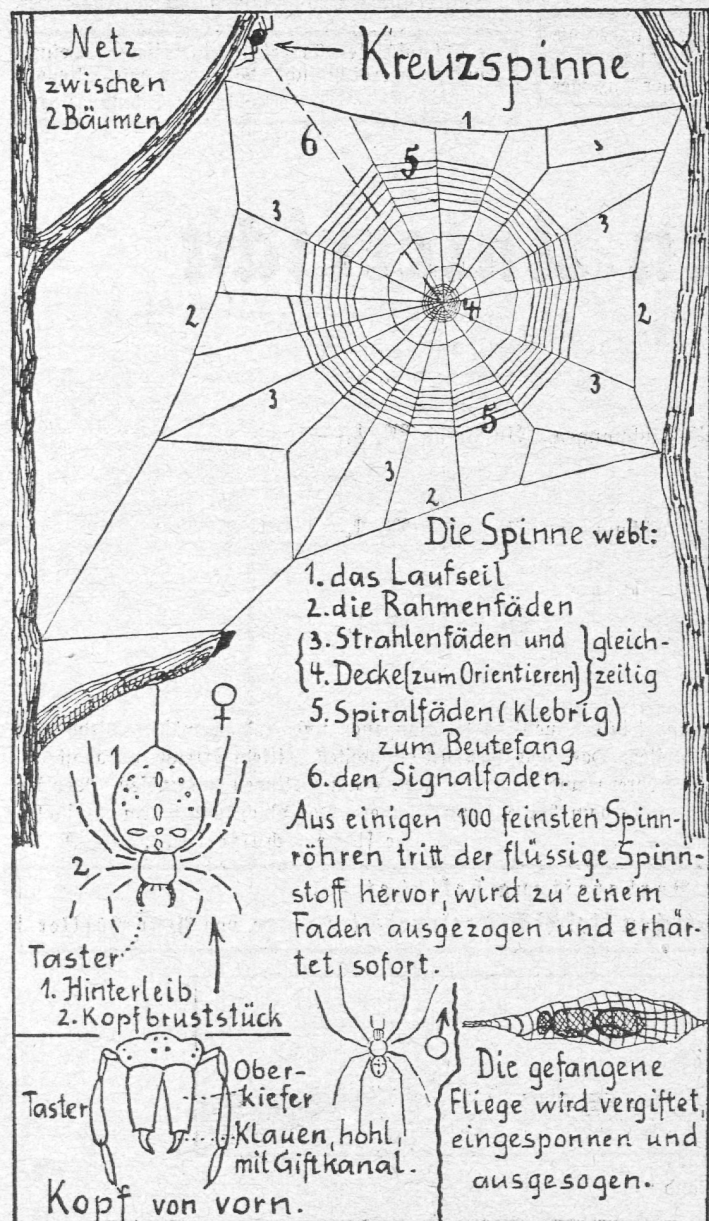 Netz
zwischen
2 Bäumen
Kreuzspinne
1
6
5
3
3
3
2
4
2
3
3
5
3
2
Die Spinne webt:
1. das Laufseil
2. die Rahmenfäden
{3. Strahlenfäden und } gleich-
{4. Decke (zum Orientieren) } zeitig
5. Spiralfäden (klebrig)
zum Beutefang
6. den Signalfaden.
♀
1
2
Taster
1. Hinterleib
2. Kopfbruststück
Aus einigen 100 feinsten Spinn-
röhren tritt der flüssige Spinn-
stoff hervor, wird zu einem
Faden ausgezogen und erhär-
tet sofort.
Taster
Ober-
kiefer
Klauen, hohl,
mit Giftkanal.
Kopf von vorn.
♂
Die gefangene
Fliege wird vergiftet,
eingesponnen und
ausgesogen.